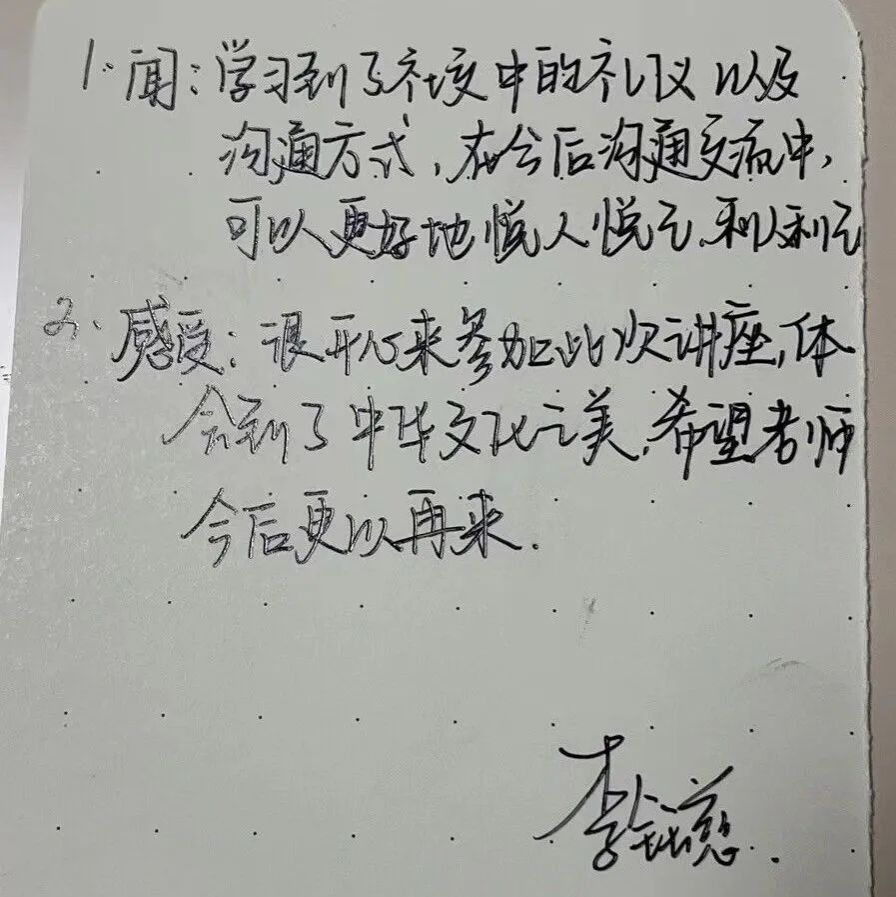 1. 闻:学习到了社交中的礼仪以及
沟通方式,在今后沟通交流中,
可以更好地悦人悦己,利人利己
2. 感受:很开心来参加此次讲座,体
会到了中华文化之美,希望老师
今后更以再来.
李